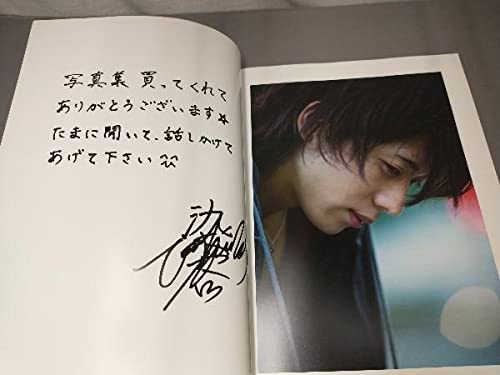 写真集 買ってくれて
ありがとうございます☆
たまに開いて、話しかけて
あげて下さい ^^